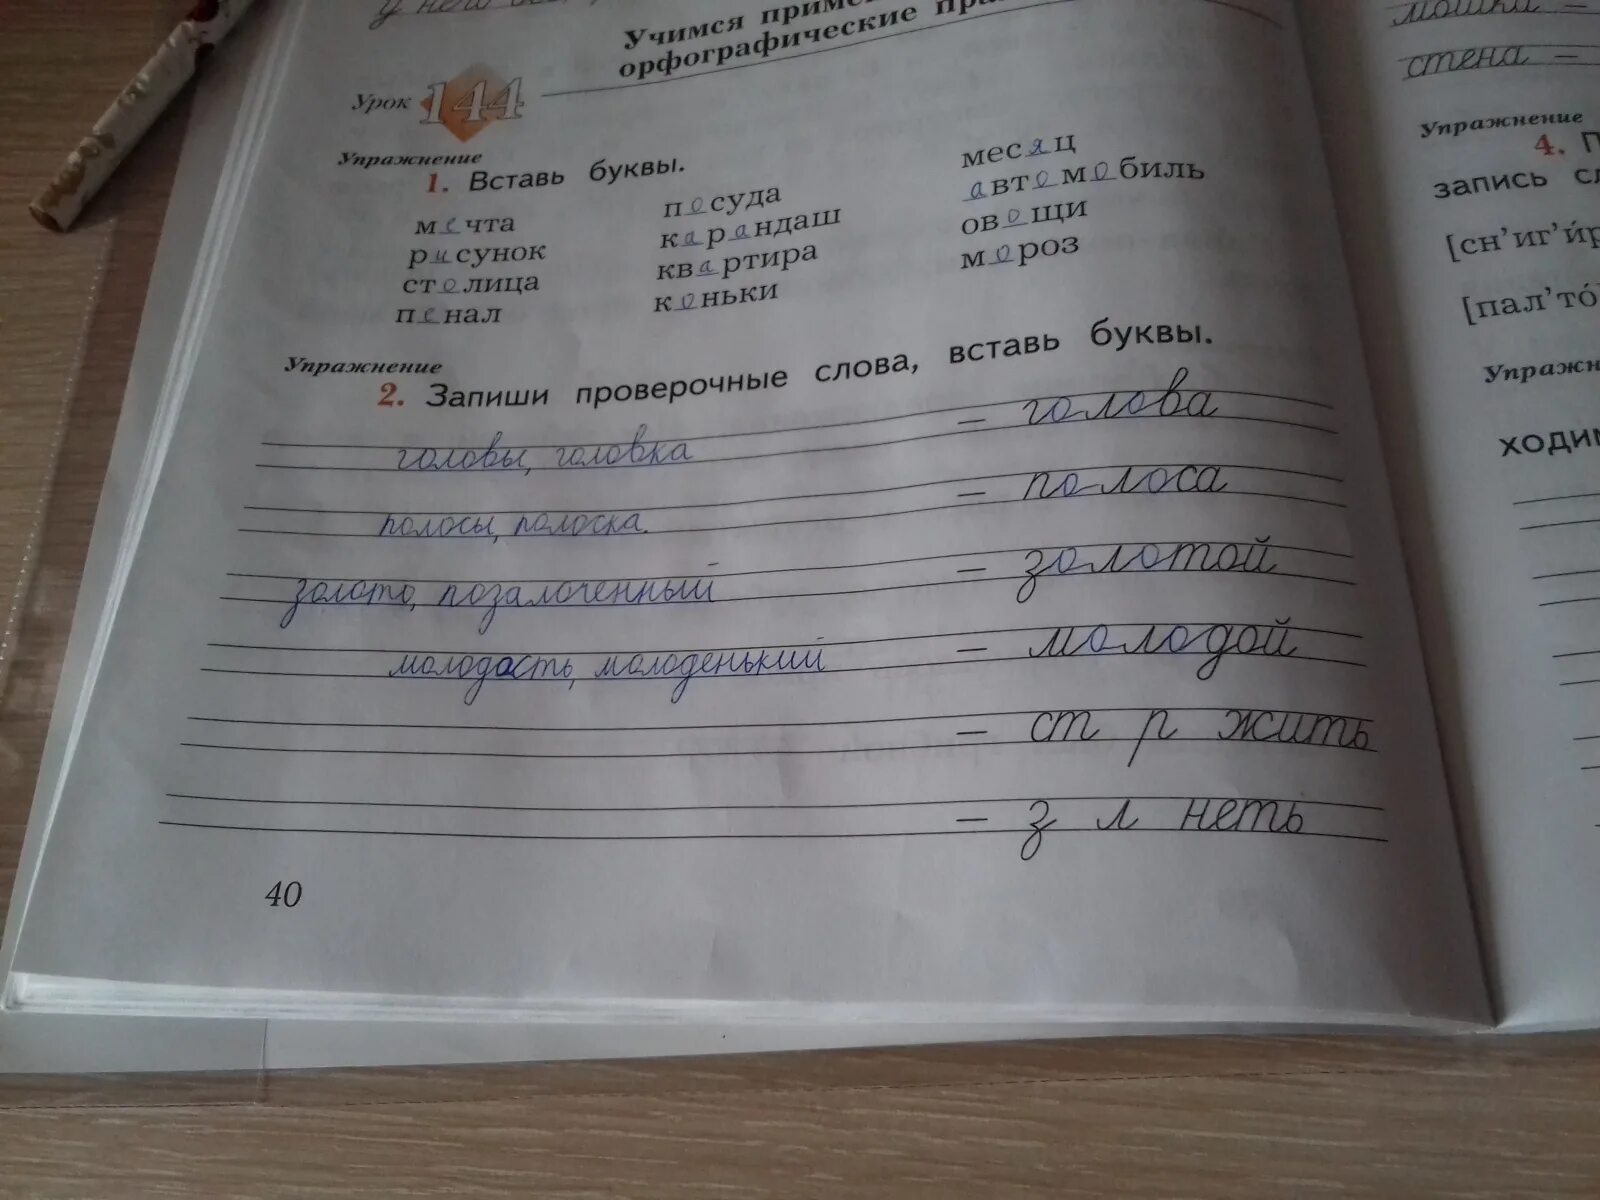 у него
Учимся
орфографические
Урок 144
Упражнение
1. Вставь буквы.
мечта
рисунок
столица
пенал
посуда
карандаш
квартира
коньки
месяц
автомобиль
овощи
мороз
Упражнение
2. Запиши проверочные слова, вставь буквы.
головы, головка – голова
полосы, полоска. – полоса
золото, позалоченный – золотой
молодасть, молоденький – молодой
– ст р жить
– з л неть
40
мошка –
стена –
Упражнение
4.
запись
[сн'иг'и́р
[пал'то́